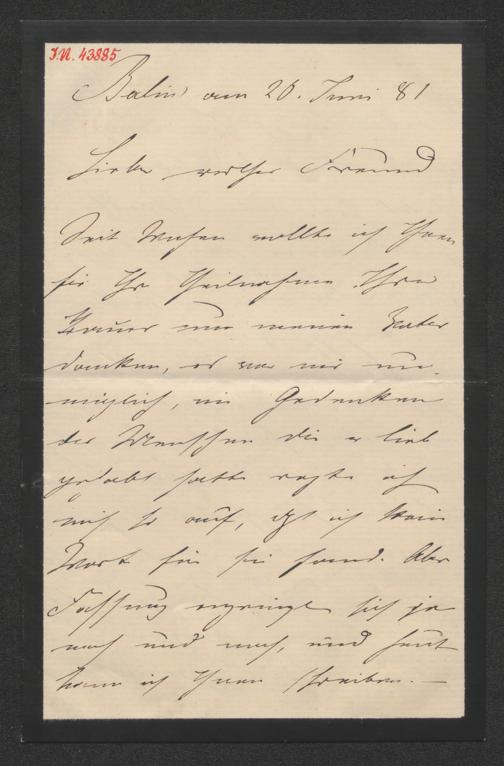 I.N. 43885
Berlin am 26. Juni 81
Lieber werther Freund
Seit Wochen wollte ich Ihnen
für Ihr Theilnahme Ihre
Trauer um meinen Vater
danken, es war mir un-
möglich, im Gedenken
der Menschen die er lieb
gehabt hatte regte ich
mich so auf, daß ich kein
Wort für sie fand. Aber
Fassung erzwingt sich ja
nach und nach, und heut
kann ich Ihnen schreiben. —